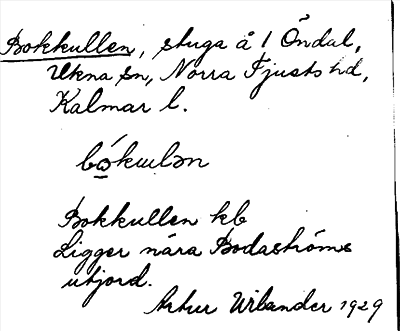 Bokkullen, stuga å 1 Öndal,
Ukna sn, Norra Tjusts hd,
Kalmar l.
Bokkullen kb
Ligger nära Bodaströms
utjord.
Artur Wilander 1929